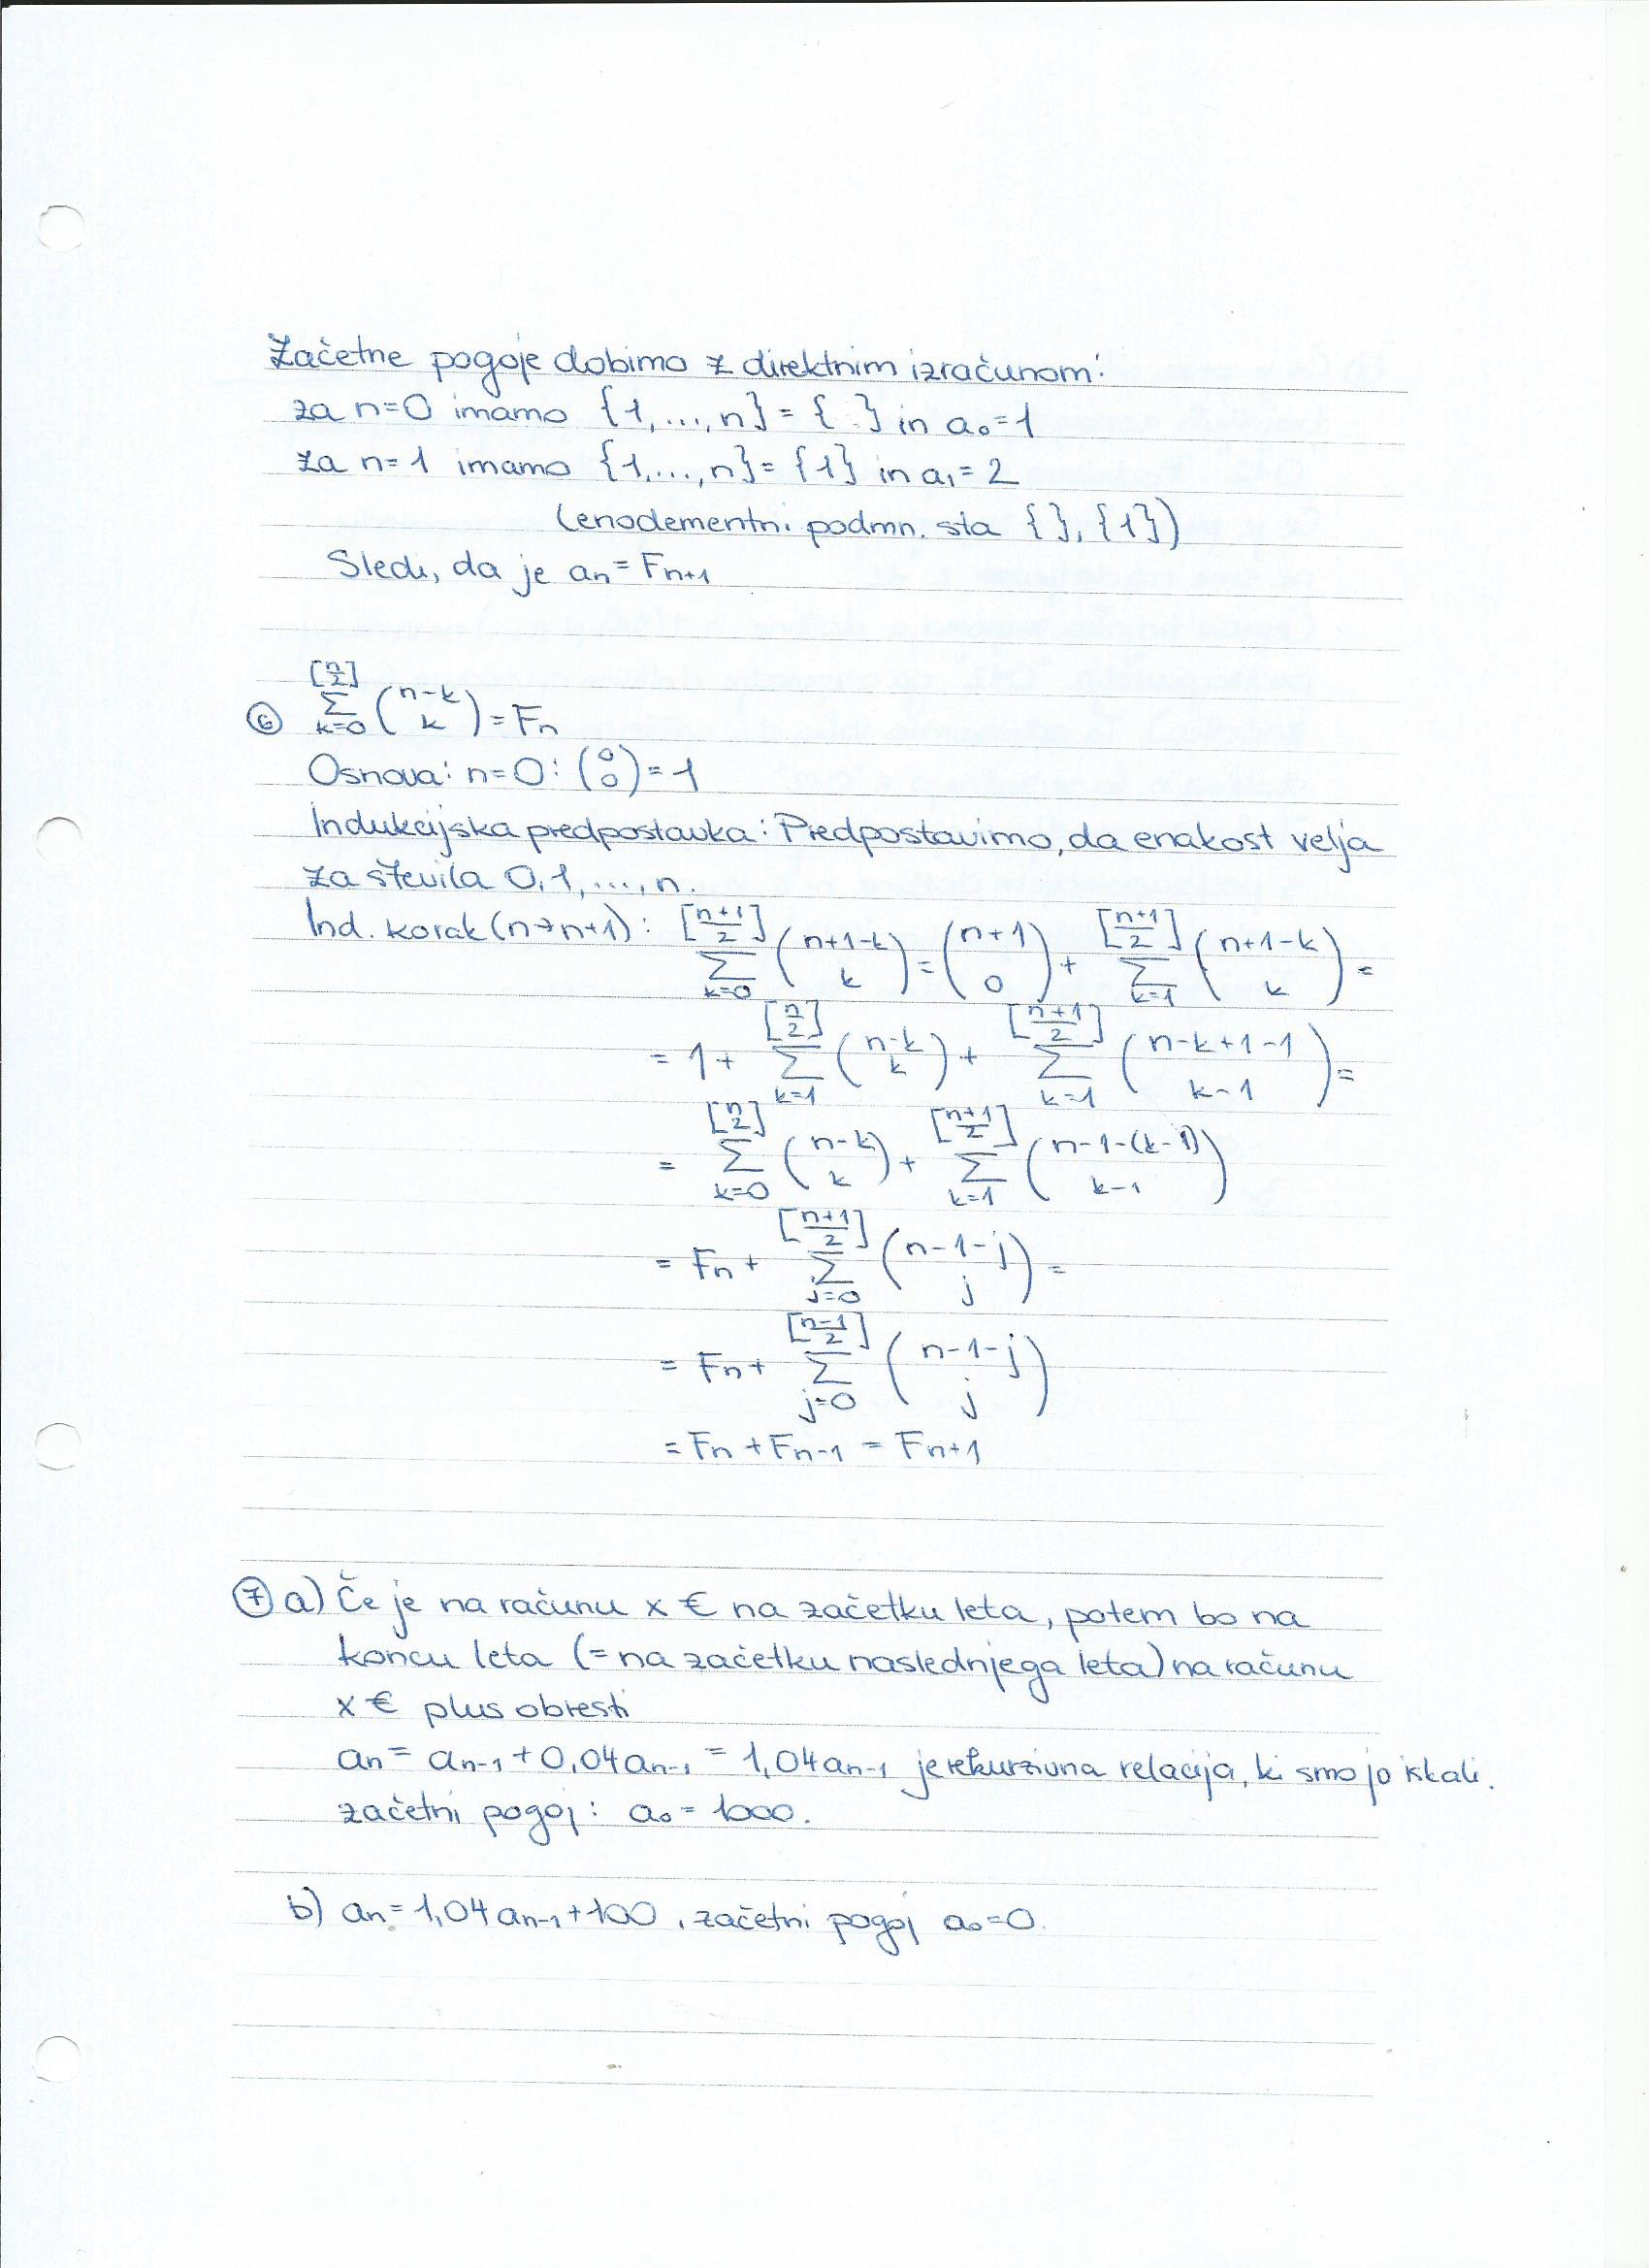 Začetne pogoje dobimo z direktnim izračunom:
za n=0 imamo {1,...,n} = { } in a₀=1
za n=1 imamo {1,...,n} = {1} in a₁=2
(enodementni podmn. sta { }, {1})
Sledi, da je aₙ = Fₙ₊₁
⑥ \sum_{k=0}^{[\frac{n}{2}]} \binom{n-k}{k} = Fₙ
Osnova: n=0: \binom{0}{0} = 1
Indukcijska predpostavka: Predpostavimo, da enakost velja
za števila 0,1,...,n.
Ind. korak (n→n+1): \sum_{k=0}^{[\frac{n+1}{2}]} \binom{n+1-k}{k} = \binom{n+1}{0} + \sum_{k=1}^{[\frac{n+1}{2}]} \binom{n+1-k}{k} =
= 1 + \sum_{k=1}^{[\frac{n}{2}]} \binom{n-k}{k} + \sum_{k=1}^{[\frac{n+1}{2}]} \binom{n-k+1-1}{k-1} =
= \sum_{k=0}^{[\frac{n}{2}]} \binom{n-k}{k} + \sum_{k=1}^{[\frac{n+1}{2}]} \binom{n-1-(k-1)}{k-1}
= Fₙ + \sum_{j=0}^{[\frac{n+1}{2}]} \binom{n-1-j}{j} =
= Fₙ + \sum_{j=0}^{[\frac{n-1}{2}]} \binom{n-1-j}{j}
= Fₙ + Fₙ₋₁ = Fₙ₊₁
⑦ a) Če je na računu x € na začetku leta, potem bo na
koncu leta (= na začetku naslednjega leta) na računu
x € plus obresti
aₙ = aₙ₋₁ + 0,04aₙ₋₁ = 1,04aₙ₋₁ je rekurzivna relacija, ki smo jo iskali.
začetni pogoj: a₀ = 1000.
b) aₙ = 1,04aₙ₋₁ + 100, začetni pogoj a₀=0.